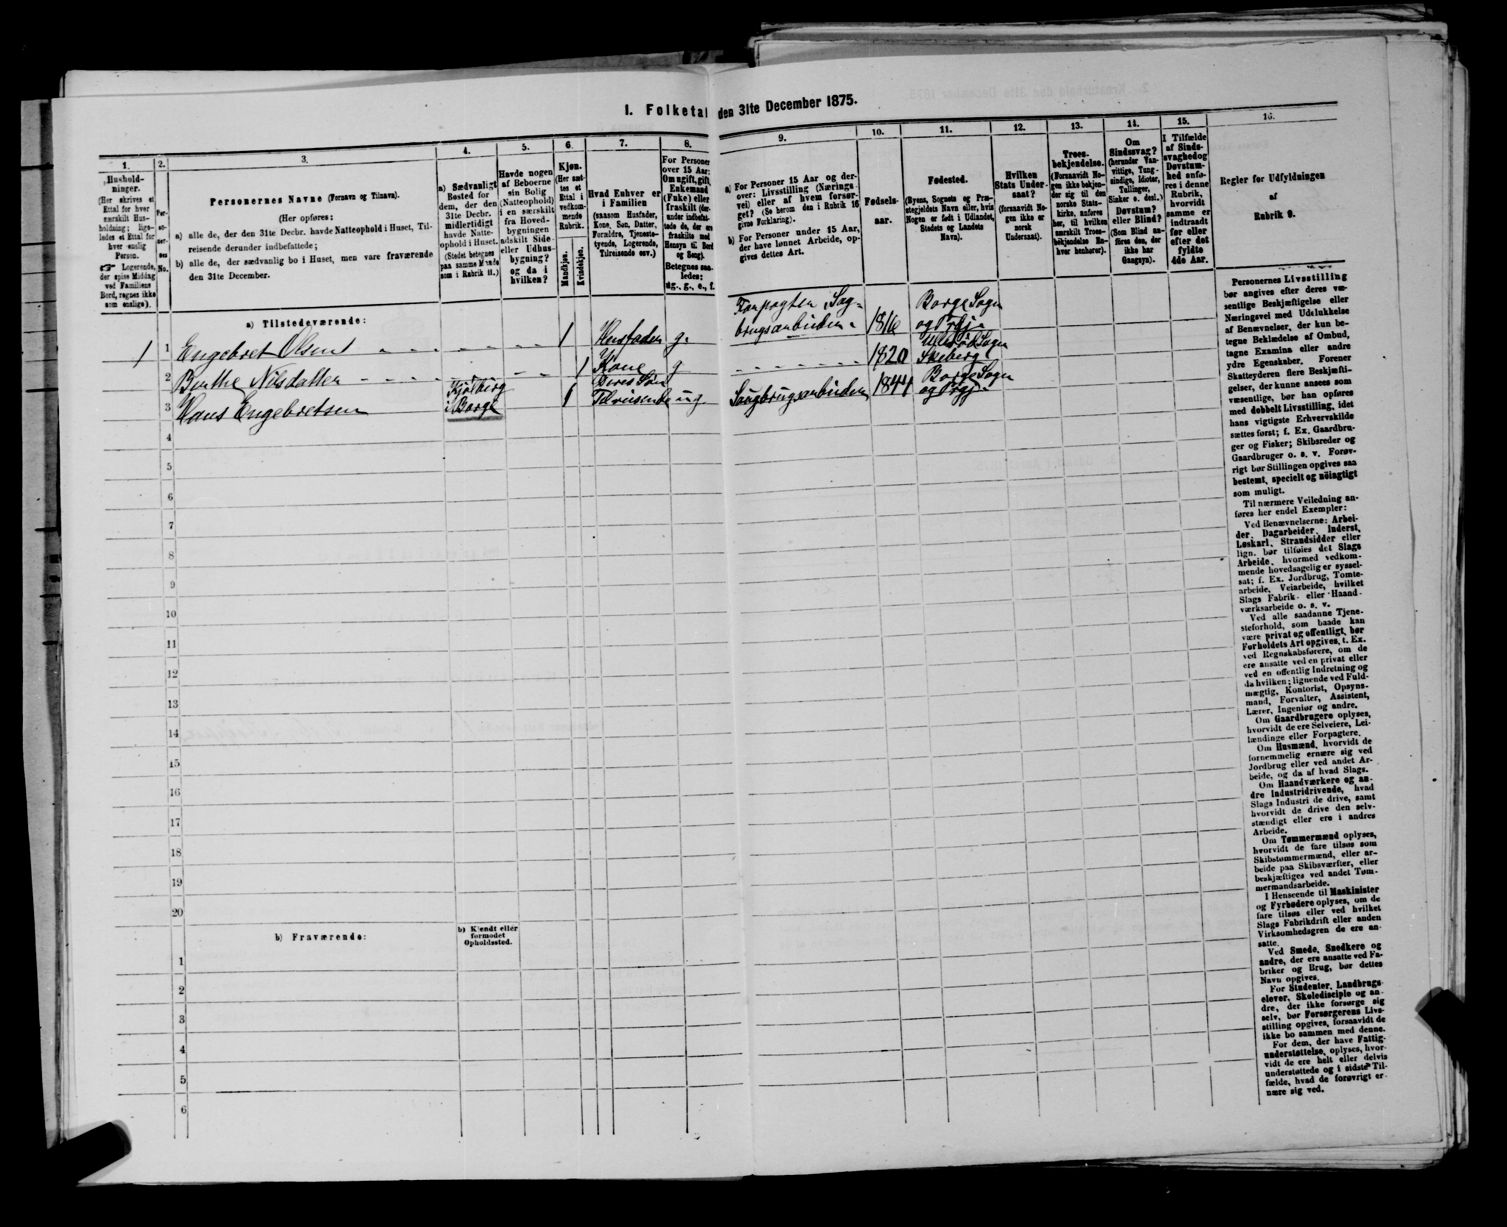 1. Folketal den 31te December 1875.
1.
Hushold-
ninger.
(Her skrives et
Ettal for hver
særskilt Hus-
holdning; lige-
ledes et Ettal for
hver enslig
Person.
☞ Logerende,
der spise Middag
ved Familiens
Bord, regnes ikke
som enslige).
2.
Per-
so-
ner-
nes
No.
3.
Personernes Navne (Fornavn og Tilnavn).
(Her opføres:
a) alle de, der den 31te Decbr. havde Natteophold i Huset, Til-
reisende derunder indbefattede;
b) alle de, der sædvanlig bo i Huset, men vare fraværende
den 31te December.
4.
a) Sædvanligt
Bosted for
dem, der den
31te Decbr.
midlertidigt
havde Natte-
ophold i Huset.
(Stedet betegnes
paa samme Maade
som i Rubrik 11.)
5.
Havde nogen
af Beboerne
sin Bolig
(Natteophold)
i en særskilt
fra Hoved-
bygningen
adskilt Side-
eller Udhus-
bygning?
og da i
hvilken?
6.
Kjøn.
(Her sæt-
tes et
Ettal i
vedkom-
mende
Rubrik.
Mandkjøn.
Kvindekjøn.
7.
Hvad Enhver er
i Familien
(saasom Husfader,
Kone, Søn, Datter,
Forældre, Tjeneste-
tyende, Logerende,
Tilreisende osv.)
8.
For Personer
over 15 Aar:
Om ugift, gift,
Enkemand
(Enke) eller
fraskilt (der-
under indbefat-
tede de, der ere
fraskilte med
Hensyn til Bord
og Seng).
Betegnes saa-
ledes:
ug., g., e., f.
9.
a) For Personer 15 Aar og der-
over: Livsstilling (Nærings-
vei) eller af hvem forsør-
get? (Se herom den i Rubrik 16
givne Forklaring).
b) For Personer under 15 Aar,
der have lønnet Arbeide, op-
gives dettes Art.
10.
Fødsels-
aar.
11.
Fødested.
(Byens, Sognets og Præ-
stegjeldets Navn eller, hvis
Nogen er født i Udlandet,
Stedets og Landets
Navn).
12.
Hvilken
Stats Under-
saat?
(forsaavidt No-
gen ikke er
norsk
Undersaat).
13.
Troes-
bekjendelse.
(Forsaavidt No-
gen ikke bekjen-
der sig til den
norske Stats-
kirke, anføres
her, til hvilken
særskilt Troes-
bekjendelse En-
hver henhører).
14.
Om
Sindssvag?
(herunder Van-
vittige, Tung-
sindige, Idioter,
Tullinger,
Sinker o. desl.)
Døvstum?
eller Blind?
(Som Blind an-
føres den, der
ikke har
Gangsyn).
15.
I Tilfælde
af Sinds-
svaghed og
Døvstum-
hed anfø-
res i denne
Rubrik,
hvorvidt
samme er
indtraadt
før eller
efter det
fyldte
4de Aar.
16.
Regler for Udfyldningen
af
Rubrik 9.
a) Tilstedeværende:
1 1 Engebret Olsen 1 Husfader g. Forpagter, Sag-
brugsarbeider 1816 Borge Sogn
og Prgj.
2 Berthe Nilsdatter 1 Kone g 1820 Sogn
Skeberg
3 Hans Engebretsen
i Borge 1 Deres Søn
Tilreisende ug. Saugbrugsarbeider 1844 Borge Sogn
og Prgj.
4
5
6
7
8
9
10
11
12
13
14
15
16
17
18
19
20
b) Fraværende:
b) Kjendt eller
formodet
Opholdssted.
1
2
3
4
5
6
Personernes Livsstilling
bør angives efter deres væ-
sentlige Beskjæftigelse eller
Næringsvei med Udelukkelse
af Benævnelser, der kun be-
tegne Beklædelse af Ombud,
tagne Examina eller andre
ydre Egenskaber. Forener
Skatteyderen flere Beskjæfti-
gelser, der kunne ansees som
væsentlige, bør han opføres
med dobbelt Livsstilling, idet
hans vigtigste Erhvervskilde
sættes først; f. Ex. Gaardbru-
ger og Fisker; Skibsreder og
Gaardbruger o. s. v. Forøv-
rigt bør Stillingen opgives saa
bestemt, specielt og nøiagtigt
som muligt.
Til nærmere Veiledning an-
føres her endel Exempler:
Ved Benævnelserne: Arbei-
der, Dagarbeider, Inderst,
Løskarl, Strandsidder eller
lign. bør tilføies det Slags
Arbeide, hvormed vedkom-
mende hovedsagelig er syssel-
sat; f. Ex. Jordbrug, Tomte-
arbeide, Veiarbeide, hvilket
Slags Fabrik- eller Haand-
værksarbeide o. s. v.
Ved alle saadanne Tjene-
steforhold, som baade kan
være privat og offentligt, bør
Forholdets Art opgives, f. Ex.
ved Regnskabsførere, om de
ere ansatte ved en privat eller
ved en offentlig Indretning og
da hvilken; lignende ved Fuld-
mægtig, Kontorist, Opsyns-
mand, Forvalter, Assistent,
Lærer, Ingeniør og andre.
Om Gaardbrugere oplyses,
hvorvidt de ere Selveiere, Lei-
lændinge eller Forpagtere.
Om Husmænd, hvorvidt de
fornemmelig ernære sig ved
Jordbrug eller ved andet Ar-
beide, og da af hvad Slags.
Om Haandværkere og an-
dre Industridrivende, hvad
Slags Industri de drive, samt
hvorvidt de drive den selv-
stændigt eller ere i andres
Arbeide.
Om Tømmermænd oplyses,
hvorvidt de fare tilsøs som
Skibstømmermænd, eller ar-
beide paa Skibsværfter, eller
beskjæftiges ved andet Tøm-
mermandsarbeide.
I Henseende til Maskinister
og Fyrbødere oplyses, om de
fare tilsøs eller ved hvilket
Slags Fabrikdrift eller anden
Virksomhedsgren de ere an-
satte.
Ved Smede, Snedkere og
andre, der ere ansatte ved Fa-
briker og Brug, bør dettes
Navn opgives.
For Studenter, Landbrugs-
elever, Skoledisciple og an-
dre, der ikke forsørge sig
selv, bør Forsørgerens Livs-
stilling opgives, forsaavidt de
ikke bo sammen med denne.
For dem, der have Fattig-
understøttelse, oplyses, hvor-
vidt de ere helt eller delvis
understøttede og i sidste Til-
fælde, hvad de forøvrigt er-
nære sig ved.